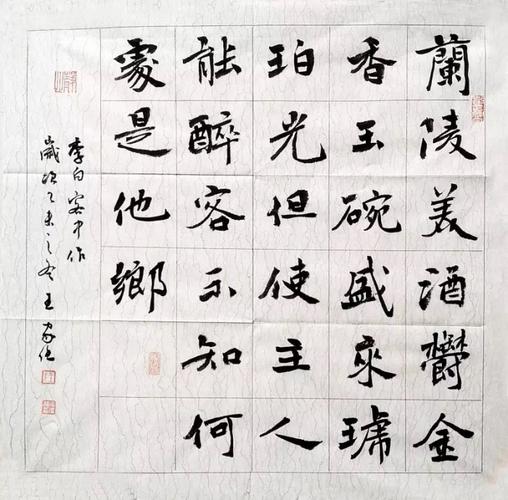 蘭陵美酒鬱金
香玉碗盛來琥
珀光但使主人
能醉客不知何
處是他鄉
李白客中作
歲次乙未之冬王家